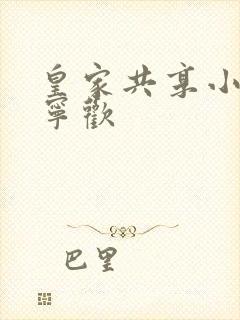 皇家共享小
寧歡
巴里